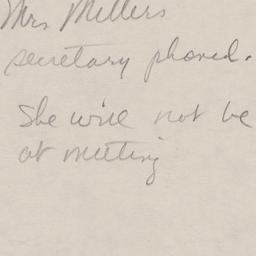 Mrs Millers
secretary phoned.
She will not be
at meeting